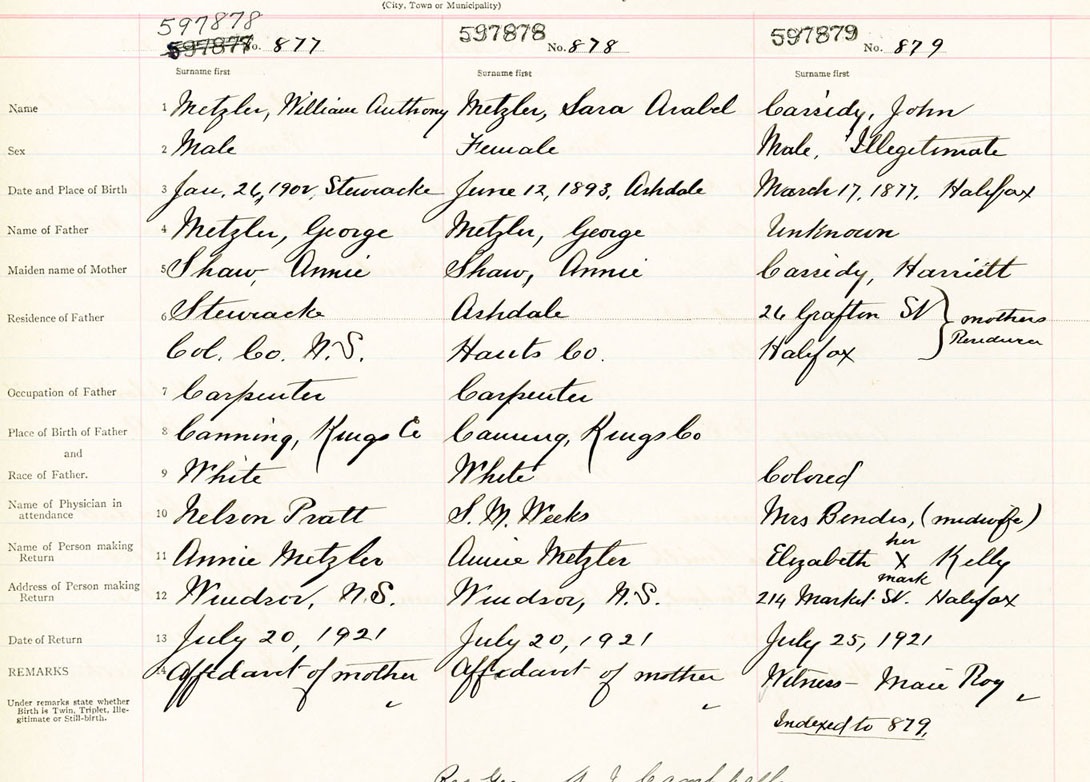 (City, Town or Municipality)
597878
597877 No. 877 597878 No. 878 597879 No. 879
Surname first Surname first Surname first
Name 1 Metzler, William Anthony Metzler, Sara Arabel Cassidy, John
Sex 2 Male Female Male, Illegetimate
Date and Place of Birth 3 Jan. 26, 1902, Stewiacke June 12, 1893, Ashdale March 17, 1877, Halifax
Name of Father 4 Metzler, George Metzler, George Unknown
Maiden name of Mother 5 Shaw, Annie Shaw, Annie Cassidy, Harriett
Residence of Father 6 Stewiacke Ashdale 26 Grafton St } mothers
Col. Co. N.S. Hants Co. Halifax
Occupation of Father 7 Carpenter Carpenter
Place of Birth of Father 8 Canning, Kings Co Canning, Kings Co
and
Race of Father. 9 White White Colored
Name of Physician in attendance 10 Nelson Pratt S. M. Weeks Mrs (midwife)
Name of Person making Return 11 Annie Metzler Annie Metzler Elizabeth her X mark Kelly
Address of Person making Return 12 Windsor, N.S. Windsor, N.S. 214 Market St. Halifax
Date of Return 13 July 20, 1921 July 20, 1921 July 25, 1921
REMARKS 14 Affidavit of mother Affidavit of mother Witness - Roy
Under remarks state whether
Birth is Twin, Triplet, Ille-
gitimate or Still-birth.
Indexed to 879.